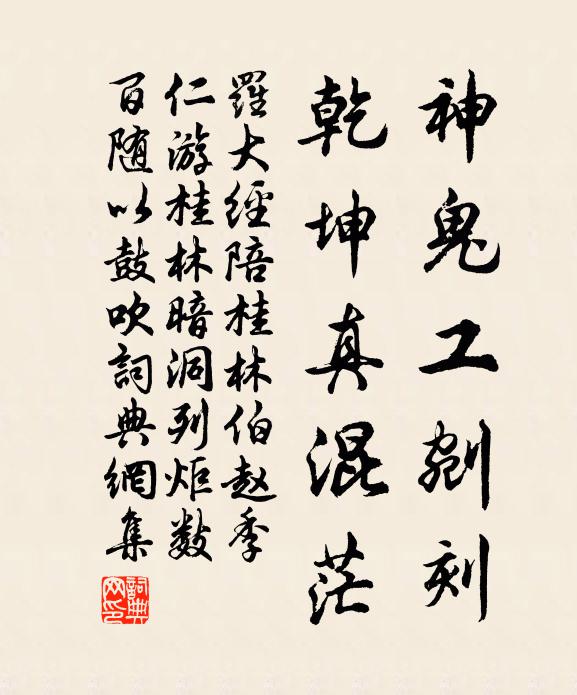 神鬼工剜刻
乾坤真混茫
羅大經陪桂林伯赵季
仁游桂林暗洞列炬数
百随以鼓吹詞典網集
詞典网印